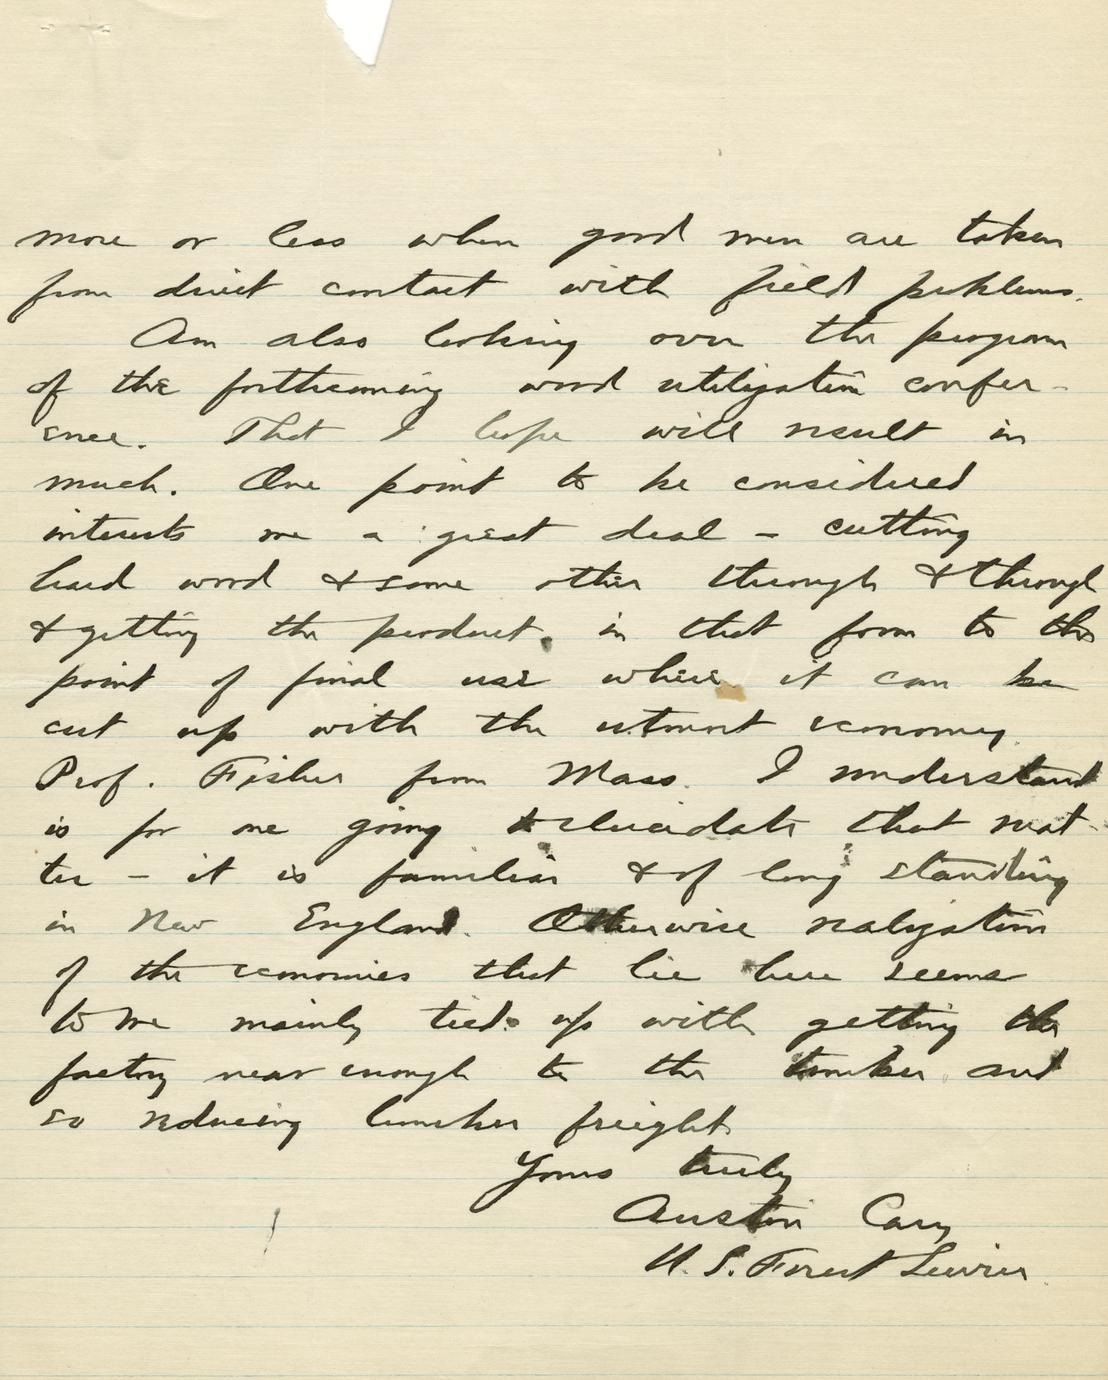 more or less when good men are taken
from direct contact with field problems.
Am also looking over the program
of the forthcoming wood utilization confer-
ence. That I hope will result in
much. One point to be considered
interests me a great deal – cutting
hard wood & some other through & through
& getting the product, in that form to the
point of final use where it can be
cut up with the utmost economy.
Prof. Fisher from Mass. I understand
is for one going to elucidate that mat-
ter – it is familiar & of long standing
in New England. Otherwise realization
of the economies that lie here seems
to me mainly tied up with getting the
factory near enough to the timber and
so reducing lumber freight.
Yours truly
Austin Cary
U.S. Forest Service.